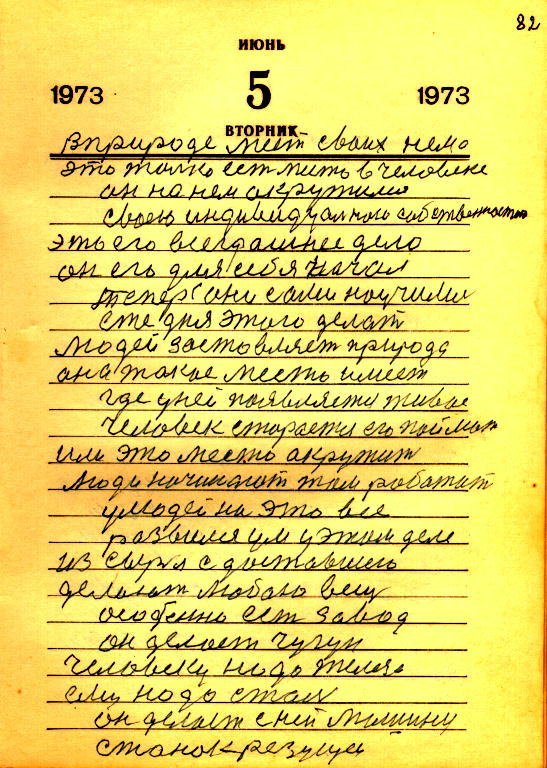 82
ИЮНЬ
1973 5 1973
ВТОРНИК
в природе мест своих немо
это толко ест жить в человеке
он на нем окружило
своею индивидуалного собственностю
это его всегдашнее дело
он его для себя начал
тепер они сами научили
сте дня этого делат
людей заставляет природа
она такое место имеет
где у ней появляется живое
человек старается его поймат
или это место окружит
люди начинают там работат
у людей на это все
развился ум у этом деле
из сыря с доставшего
делают любою вещ
особенно ест завод
он делает чугун
человеку надо железо
ему надо стал
он делает с ней машину
станок режущей